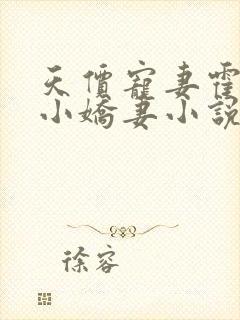 天價寵妻霍
小嬌妻小說
徐容